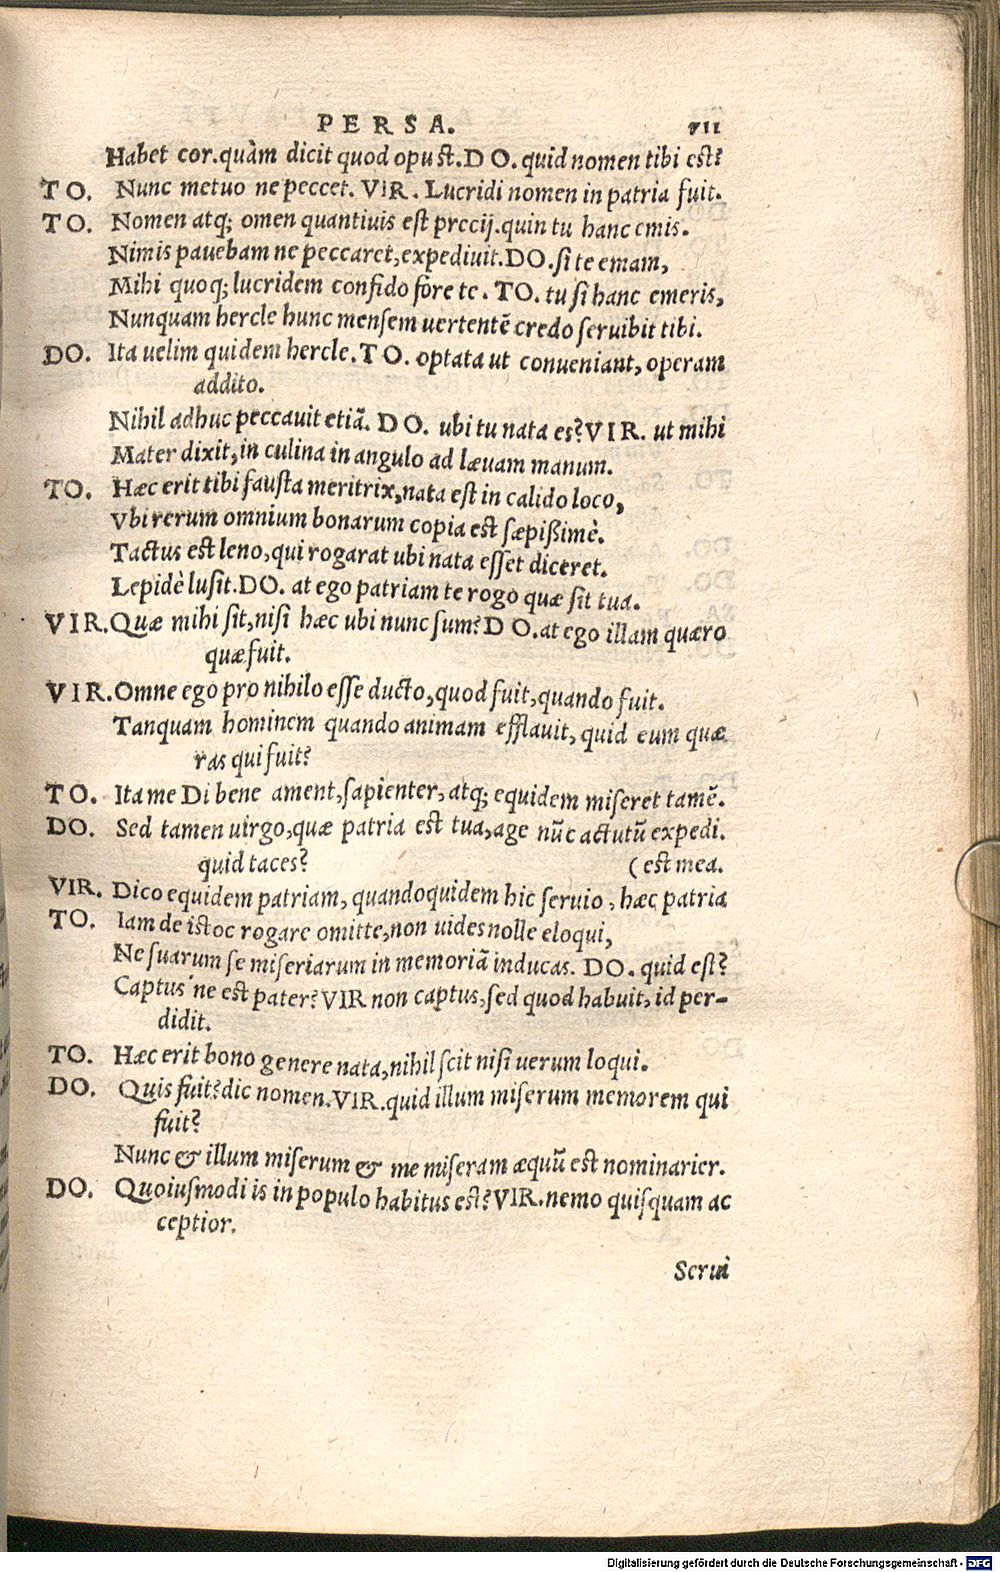 PERSA. VII
Habet cor.quàm dicit quod opust.DO.quid nomen tibi est?
TO. Nunc metuo ne peccet. VIR. Lucridi nomen in patria fuit.
TO. Nomen atq; omen quantiuis est precij.quin tu hanc emis.
Nimis pauebam ne peccaret,expediuit.DO.si te emam,
Mihi quoq; lucridem confido fore te. TO. tu si hanc emeris,
Nunquam hercle hunc mensem uertentē credo seruibit tibi.
DO. Ita uelim quidem hercle.TO. optata ut conueniant, operam
addito.
Nihil adhuc peccauit etiā. DO. ubi tu nata es?VIR. ut mihi
Mater dixit,in culina in angulo ad læuam manum.
TO. Hæc erit tibi fausta meritrix,nata est in calido loco,
Vbi rerum omnium bonarum copia est sæpißimè.
Tactus est leno,qui rogarat ubi nata esset diceret.
Lepidè lusit.DO. at ego patriam te rogo quæ sit tua.
VIR.Quæ mihi sit,nisi hæc ubi nunc sum?DO.at ego illam quæro
quæ fuit.
VIR.Omne ego pro nihilo esse ducto,quod fuit,quando fuit.
Tanquam hominem quando animam efflauit, quid eum quæ
ras qui fuit?
TO. Ita me Di bene ament,sapienter, atq; equidem miseret tamē.
DO. Sed tamen uirgo,quæ patria est tua,age nūc actutū expedi.
quid taces? (est mea.
VIR. Dico equidem patriam, quandoquidem hic seruio, hæc patria
TO. Iam de istoc rogare omitte,non uides nolle eloqui,
Ne suarum se miseriarum in memoriā inducas. DO. quid est?
Captus'ne est pater?VIR non captus,sed quod habuit, id per-
didit.
TO. Hæc erit bono genere nata,nihil scit nisi uerum loqui.
DO. Quis fuit?dic nomen.VIR.quid illum miserum memorem qui
fuit?
Nunc & illum miserum & me miseram æquū est nominarier.
DO. Quoiusmodi is in populo habitus est?VIR.nemo quisquam ac
ceptior.
Serui
Digitalisierung gefördert durch die Deutsche Forschungsgemeinschaft - DFG